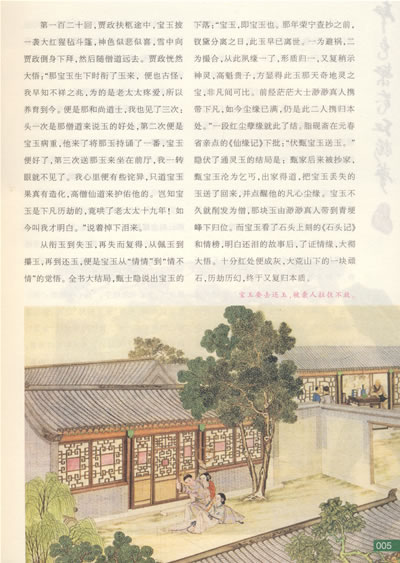 第一百二十回，贾政扶柩途中，宝玉披
一袭大红猩毡斗篷，神色似悲似喜，雪中向
贾政倒身下拜，然后随僧道远去。贾政恍然
大悟：“那宝玉生下时衔了玉来，便也古怪，
我早知不祥之兆，为的是老太太疼爱，所以
养育到今。便是那和尚道士，我也见了三次：
头一次是那僧道来说玉的好处，第二次便是
宝玉病重，他来了将那玉持诵了一番，宝玉
便好了，第三次送那玉来坐在前厅，我一转
眼就不见了。我心里便有些诧异，只道宝玉
果真有造化，高僧仙道来护佑他的。岂知宝
玉是下凡历劫的，竟哄了老太太十九年！如
今叫我才明白。”说着掉下泪来。
从衔玉到失玉，再失而复得，从佩玉到
摔玉，再到还玉，便是宝玉从“情情”到“情不
情”的觉悟。全书大结局，甄士隐说出宝玉的
下落：“宝玉，即宝玉也。那年荣宁查抄之前，
钗黛分离之日，此玉早已离世。一为避祸，二
为撮合，从此夙缘一了，形质归一，又复稍示
神灵，高魁贵子，方显得此玉那天奇地灵之
宝，非凡间可比。前经茫茫大士渺渺真人携
带下凡，如今尘缘已满，仍是此二人携归本
处。”一段红尘孽缘就此了结。脂砚斋在元春
省亲点的《仙缘记》下批：“伏甄宝玉送玉。”
隐伏了通灵玉的结局是：甄家后来被抄家，
甄宝玉沦为乞丐，出家得道，把宝玉丢失的
玉送了回来，并点醒他的凡心尘缘。宝玉不
久就削发为僧，那块玉由渺渺真人带到青埂
峰下归位。而宝玉看了石头上刻的《石头记》
和情榜，明白还泪的故事后，了证情缘，大彻
大悟。十分红处便成灰，大荒山下的一块顽
石，历劫历幻，终于又复归本质。
宝玉要去还玉，被袭人拉住不放。
005